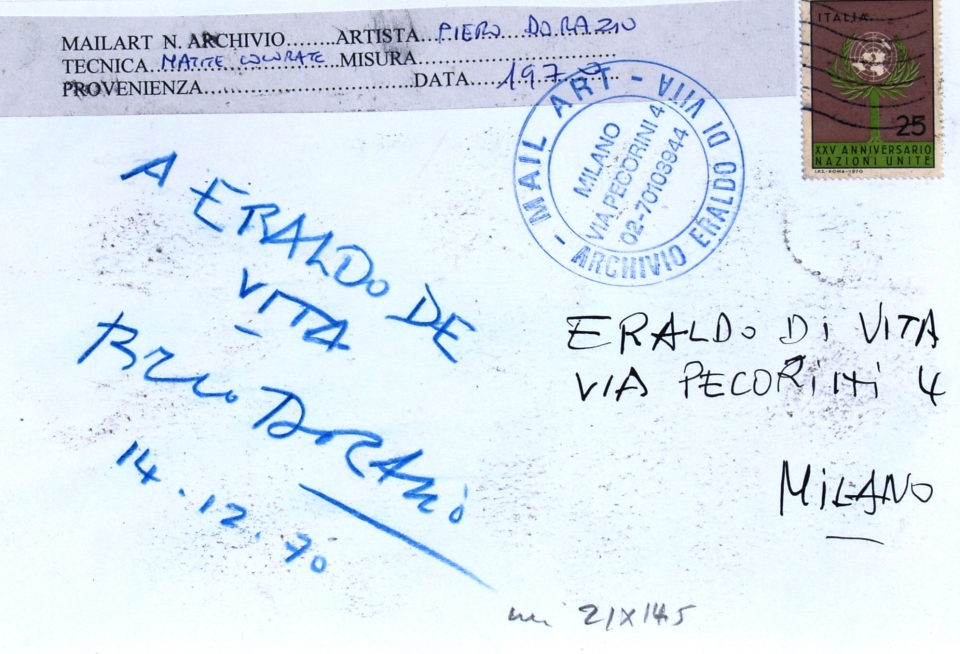 MAILART N. ARCHIVIO.......ARTISTA...PIERO DORAZIO
TECNICA...MATITE COLORATE...MISURA
PROVENIENZA..............................DATA.....197
ITALIA
25
XXV ANNIVERSARIO
NAZIONI UNITE
I.P.S.-ROMA-1970
MAIL ART - ARCHIVIO ERALDO DI VITA -
MILANO
VIA PECORINI 4
02-70103944
A ERALDO DE
VITA
Piero DORAZIO
14.12.70
ERALDO DI VITA
VIA PECORINI 4
MILANO
21X14.5